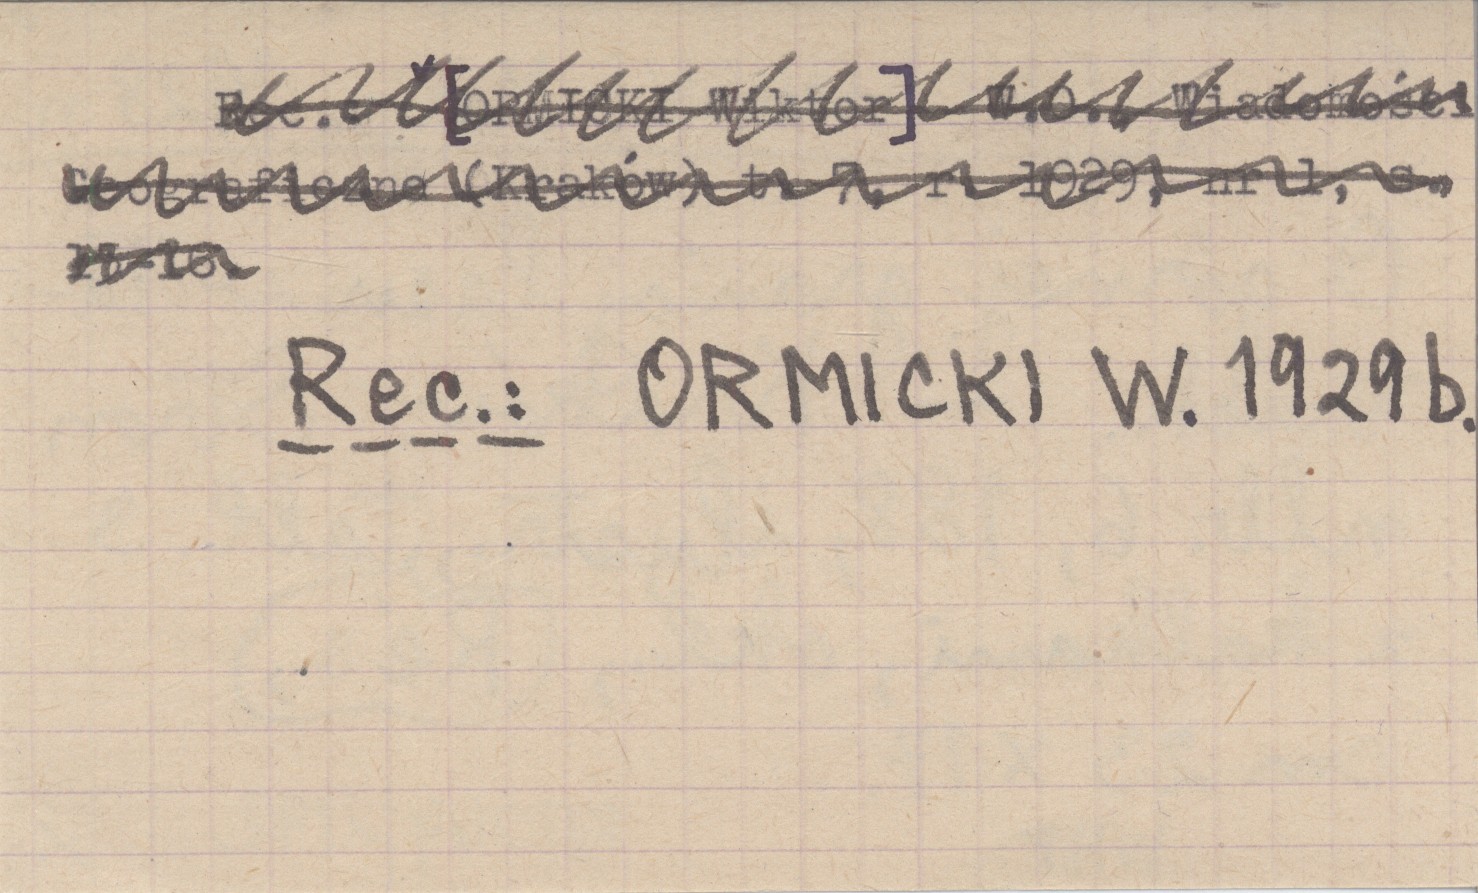 Rec. [ORMICKI Wiktor] W.O., Wiadomości
Geograficzne (Kraków) t. 7, r. 1929, nr 1, s.
Rec.: ORMICKI W. 1929b.